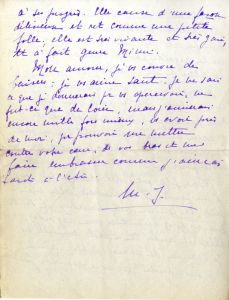 à ses progrès. Elle cause d'une façon
délicieuse et rit comme une petite
folle. elle est très vivante et très gaie,
et à fait genre Mimi.
Mon amour, je vs couvre de
baisers. je vs aime tant. je ne sais
ce que je donnerais pr vs apercevoir, ne
fut-ce que de loin, mais j'aimerais
encore mille fois mieux, vs avoir près
de moi, pr pouvoir me mettre
contre votre cœur, ds vos bras et me
faire embrasser comme j'aimerais
tant à l'être.
M. J.